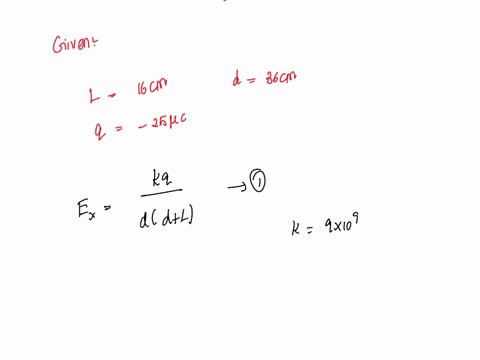 Given:
L = 16cm d = 36cm
q = -25μC
Ex = kq / d(d+L) → ①
K = 9×10⁹